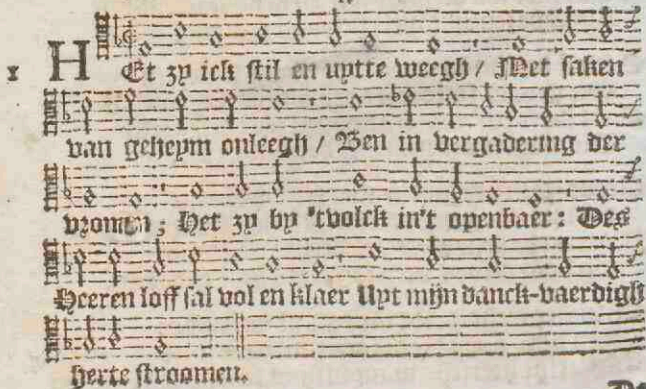 1 HEt zy ick stil en uytte weegh / Met saken
van geheym onleegh / Ben in vergadering der
vromen; Het zy by 'tvolck in't openbaer: Des
Heeren loff sal vol en klaer Uyt mijn danck-vaerdigh
herte stroomen.